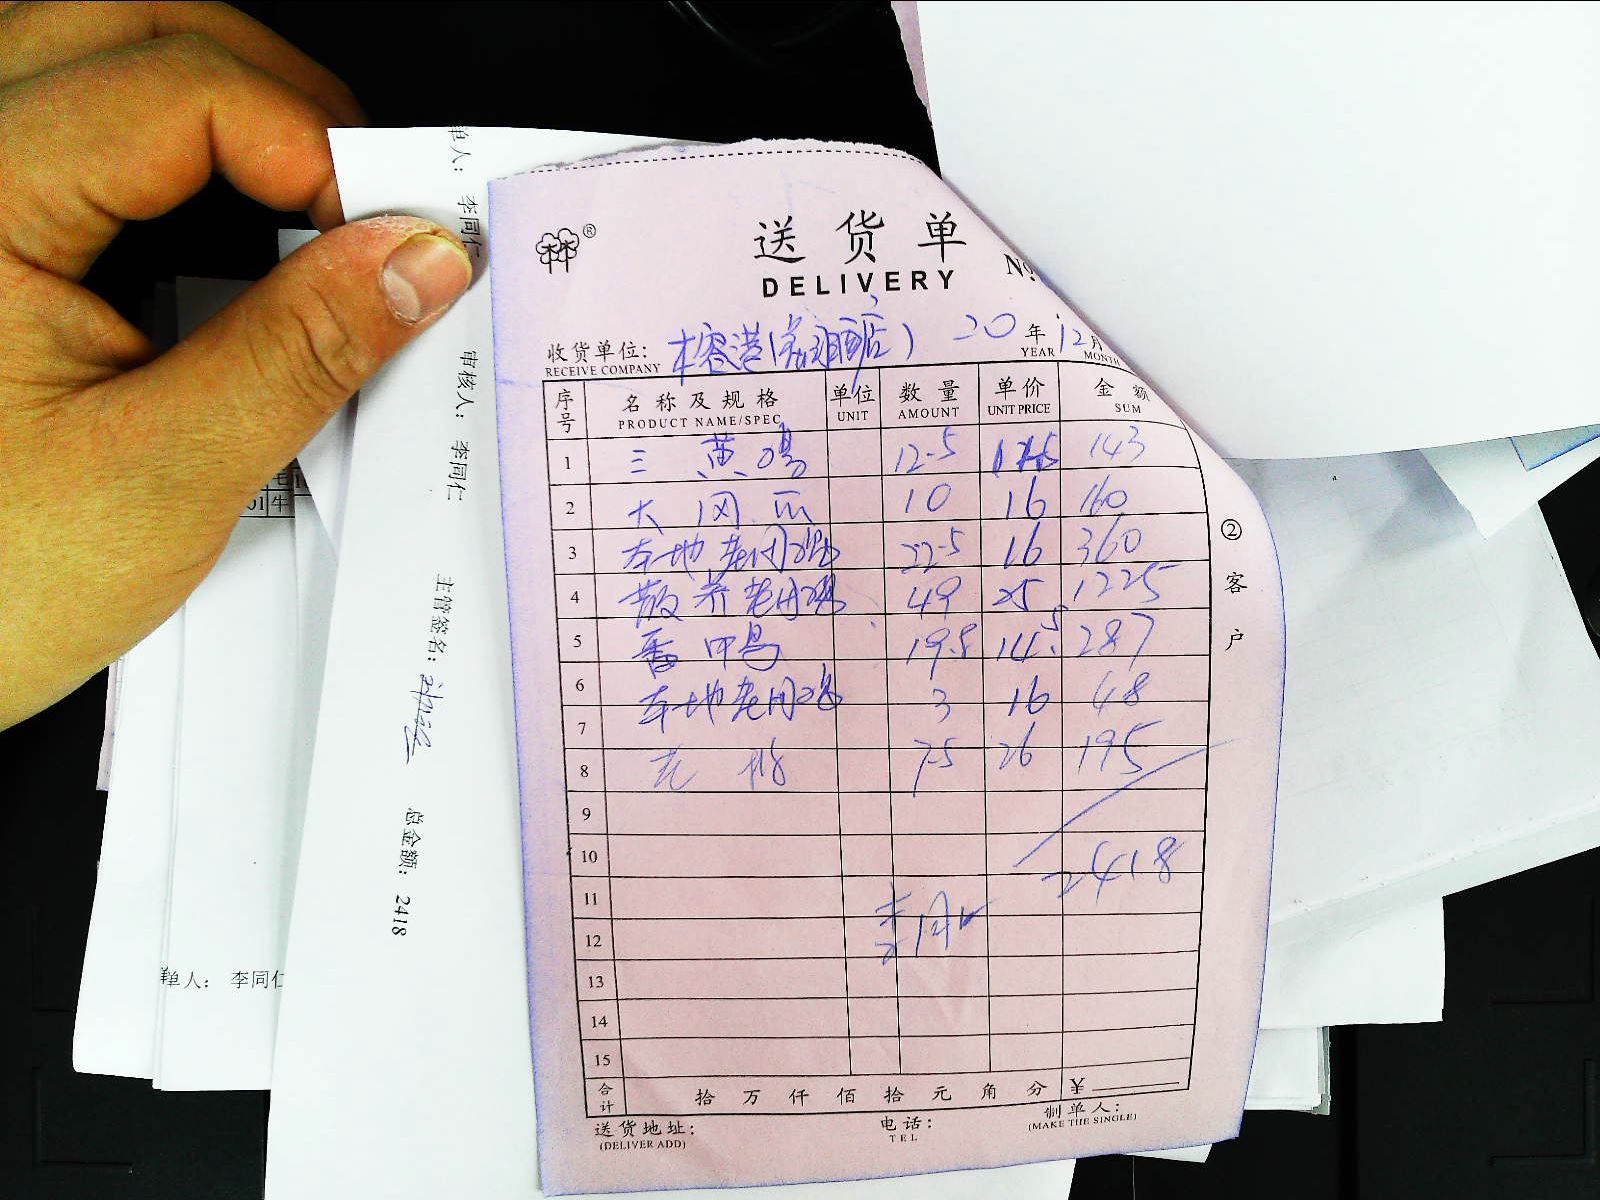 送货单
DELIVERY
No.
收货单位: 木容港( 店) 20 年 12 月
RECEIVE COMPANY YEAR MONTH
序号 名称及规格 单位 数量 单价 金额
PRODUCT NAME/SPEC UNIT AMOUNT UNIT PRICE SUM
1 三黄鸡 12.5 143
2 大 10 16 160
3 本地老阉鸡 22.5 16 360
4 散养老阉鸡 49 25 1225
5 番鸭 19.8 14.5 287
6 本地老阉鸡 3 16 48
7
8 7.5 26 195
9
10 2418
11
12 李同仁
13
14
15
合计 拾 万 仟 佰 拾 元 角 分 ¥
送货地址: 电话: 制单人:
(DELIVER ADD) TEL (MAKE THE SINGLE)
② 客户
单人: 李同仁 审核人: 李同仁
主管签名: 总金额: 2418
单人: 李同仁